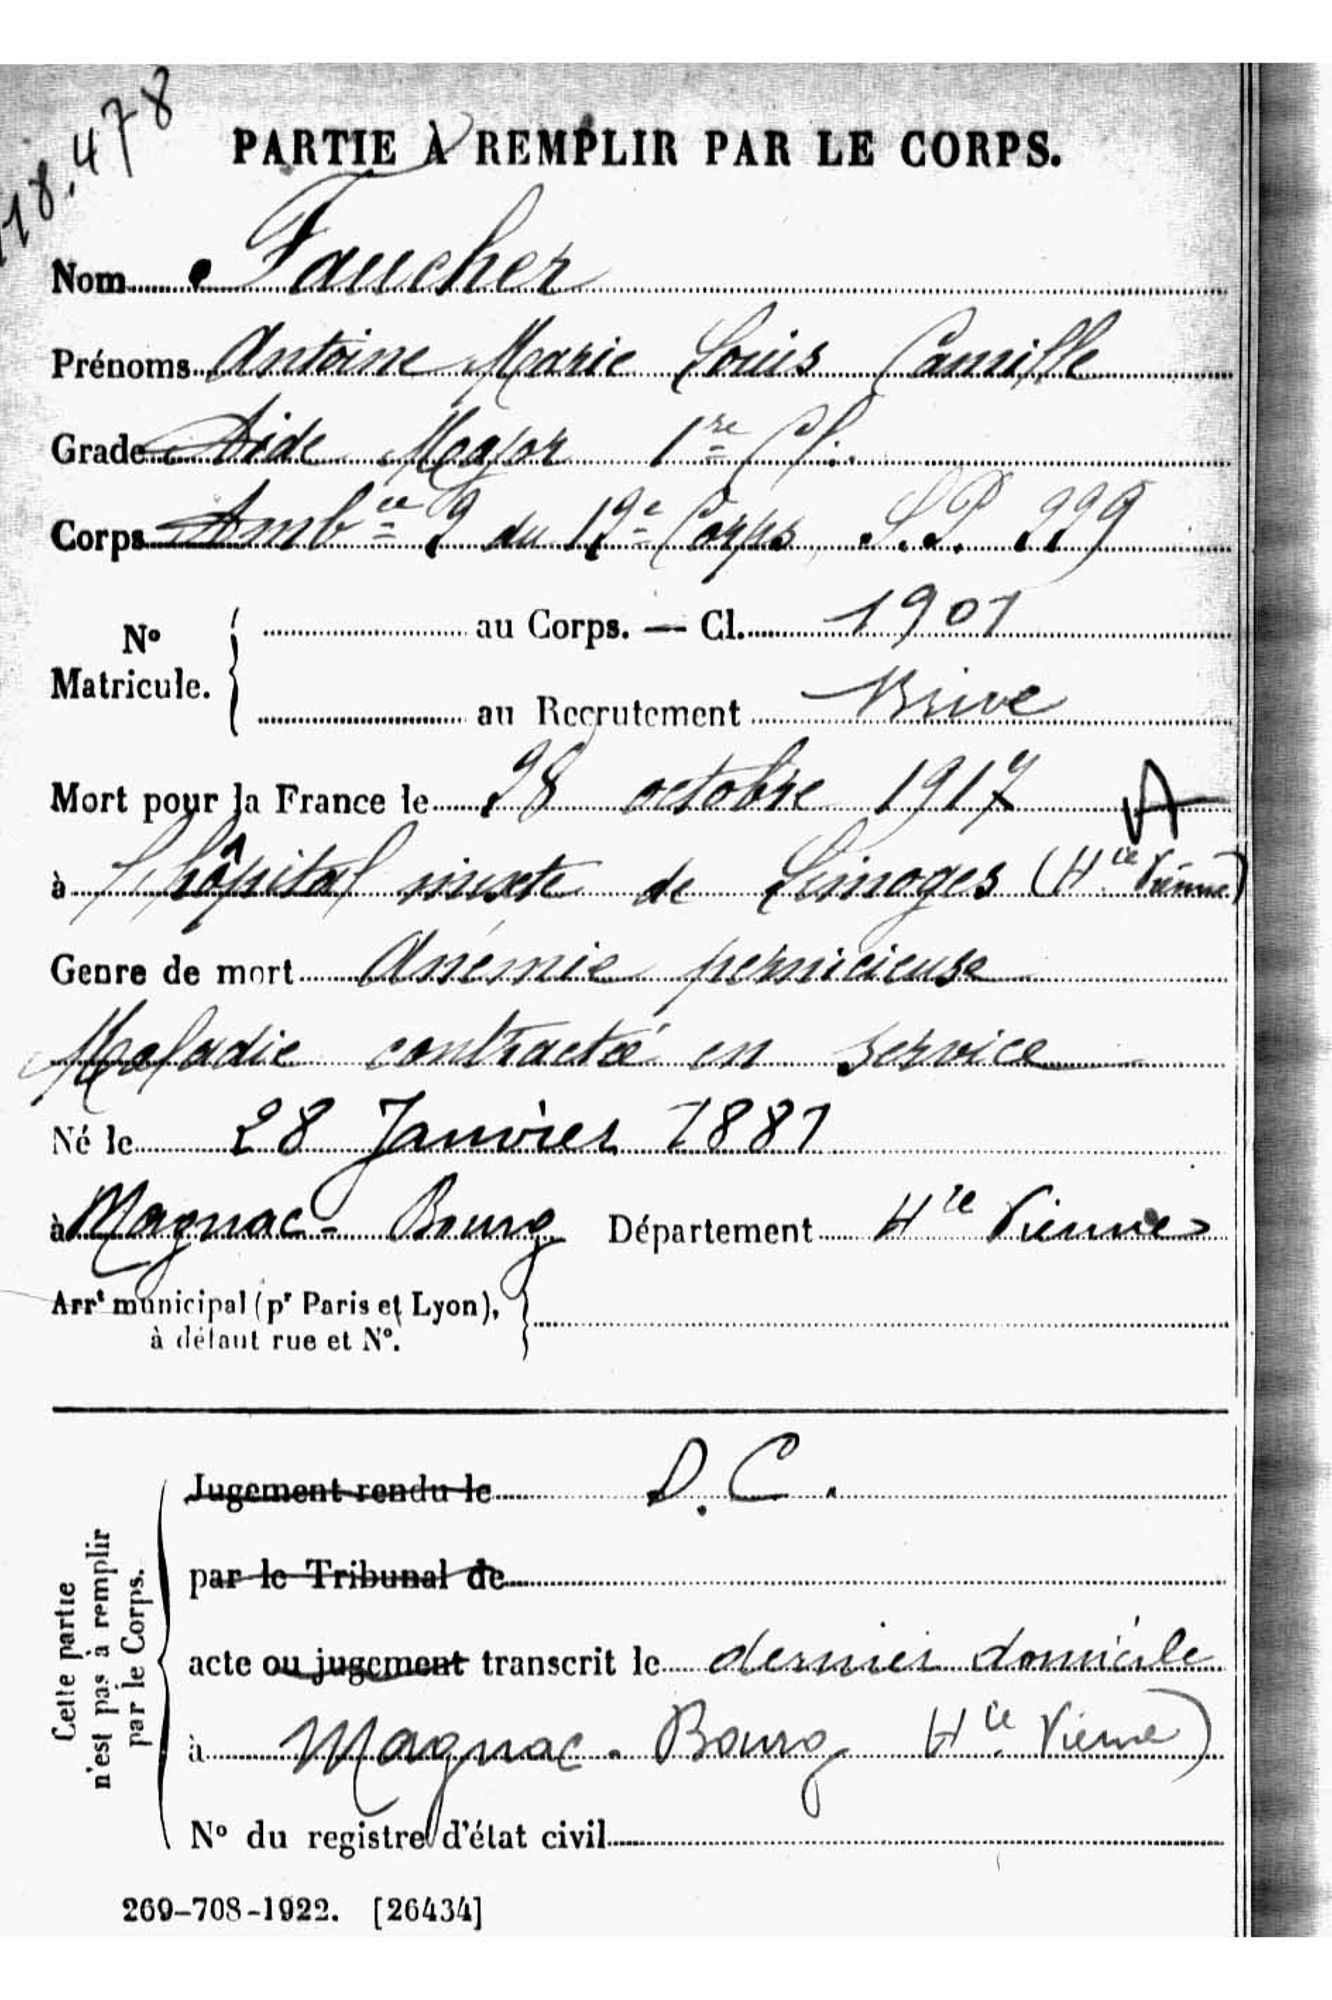 18.478
PARTIE À REMPLIR PAR LE CORPS.
Nom Faucher
Prénoms Antoine Marie Louis Camille
Grade Aide Major 1re Cl.
Corps Ambce 9 du 12e Corps S.P. 229
No
Matricule.
au Corps. — Cl. 1901
au Recrutement Brive
Mort pour la France le 28 octobre 1917
à l'hôpital mixte de Limoges (Hte Vienne)
Genre de mort Anémie pernicieuse
Maladie contractée en service
Né le 28 Janvier 1881
à Magnac-Bourg Département Hte Vienne
Arrt municipal (pr Paris et Lyon),
à défaut rue et No.
Cette partie
n'est pas à remplir
par le Corps.
Jugement rendu le D.C.
par le Tribunal de
acte ou jugement transcrit le dernier domicile
à Magnac-Bourg Hte Vienne)
No du registre d'état civil
269-708-1922. [26434]